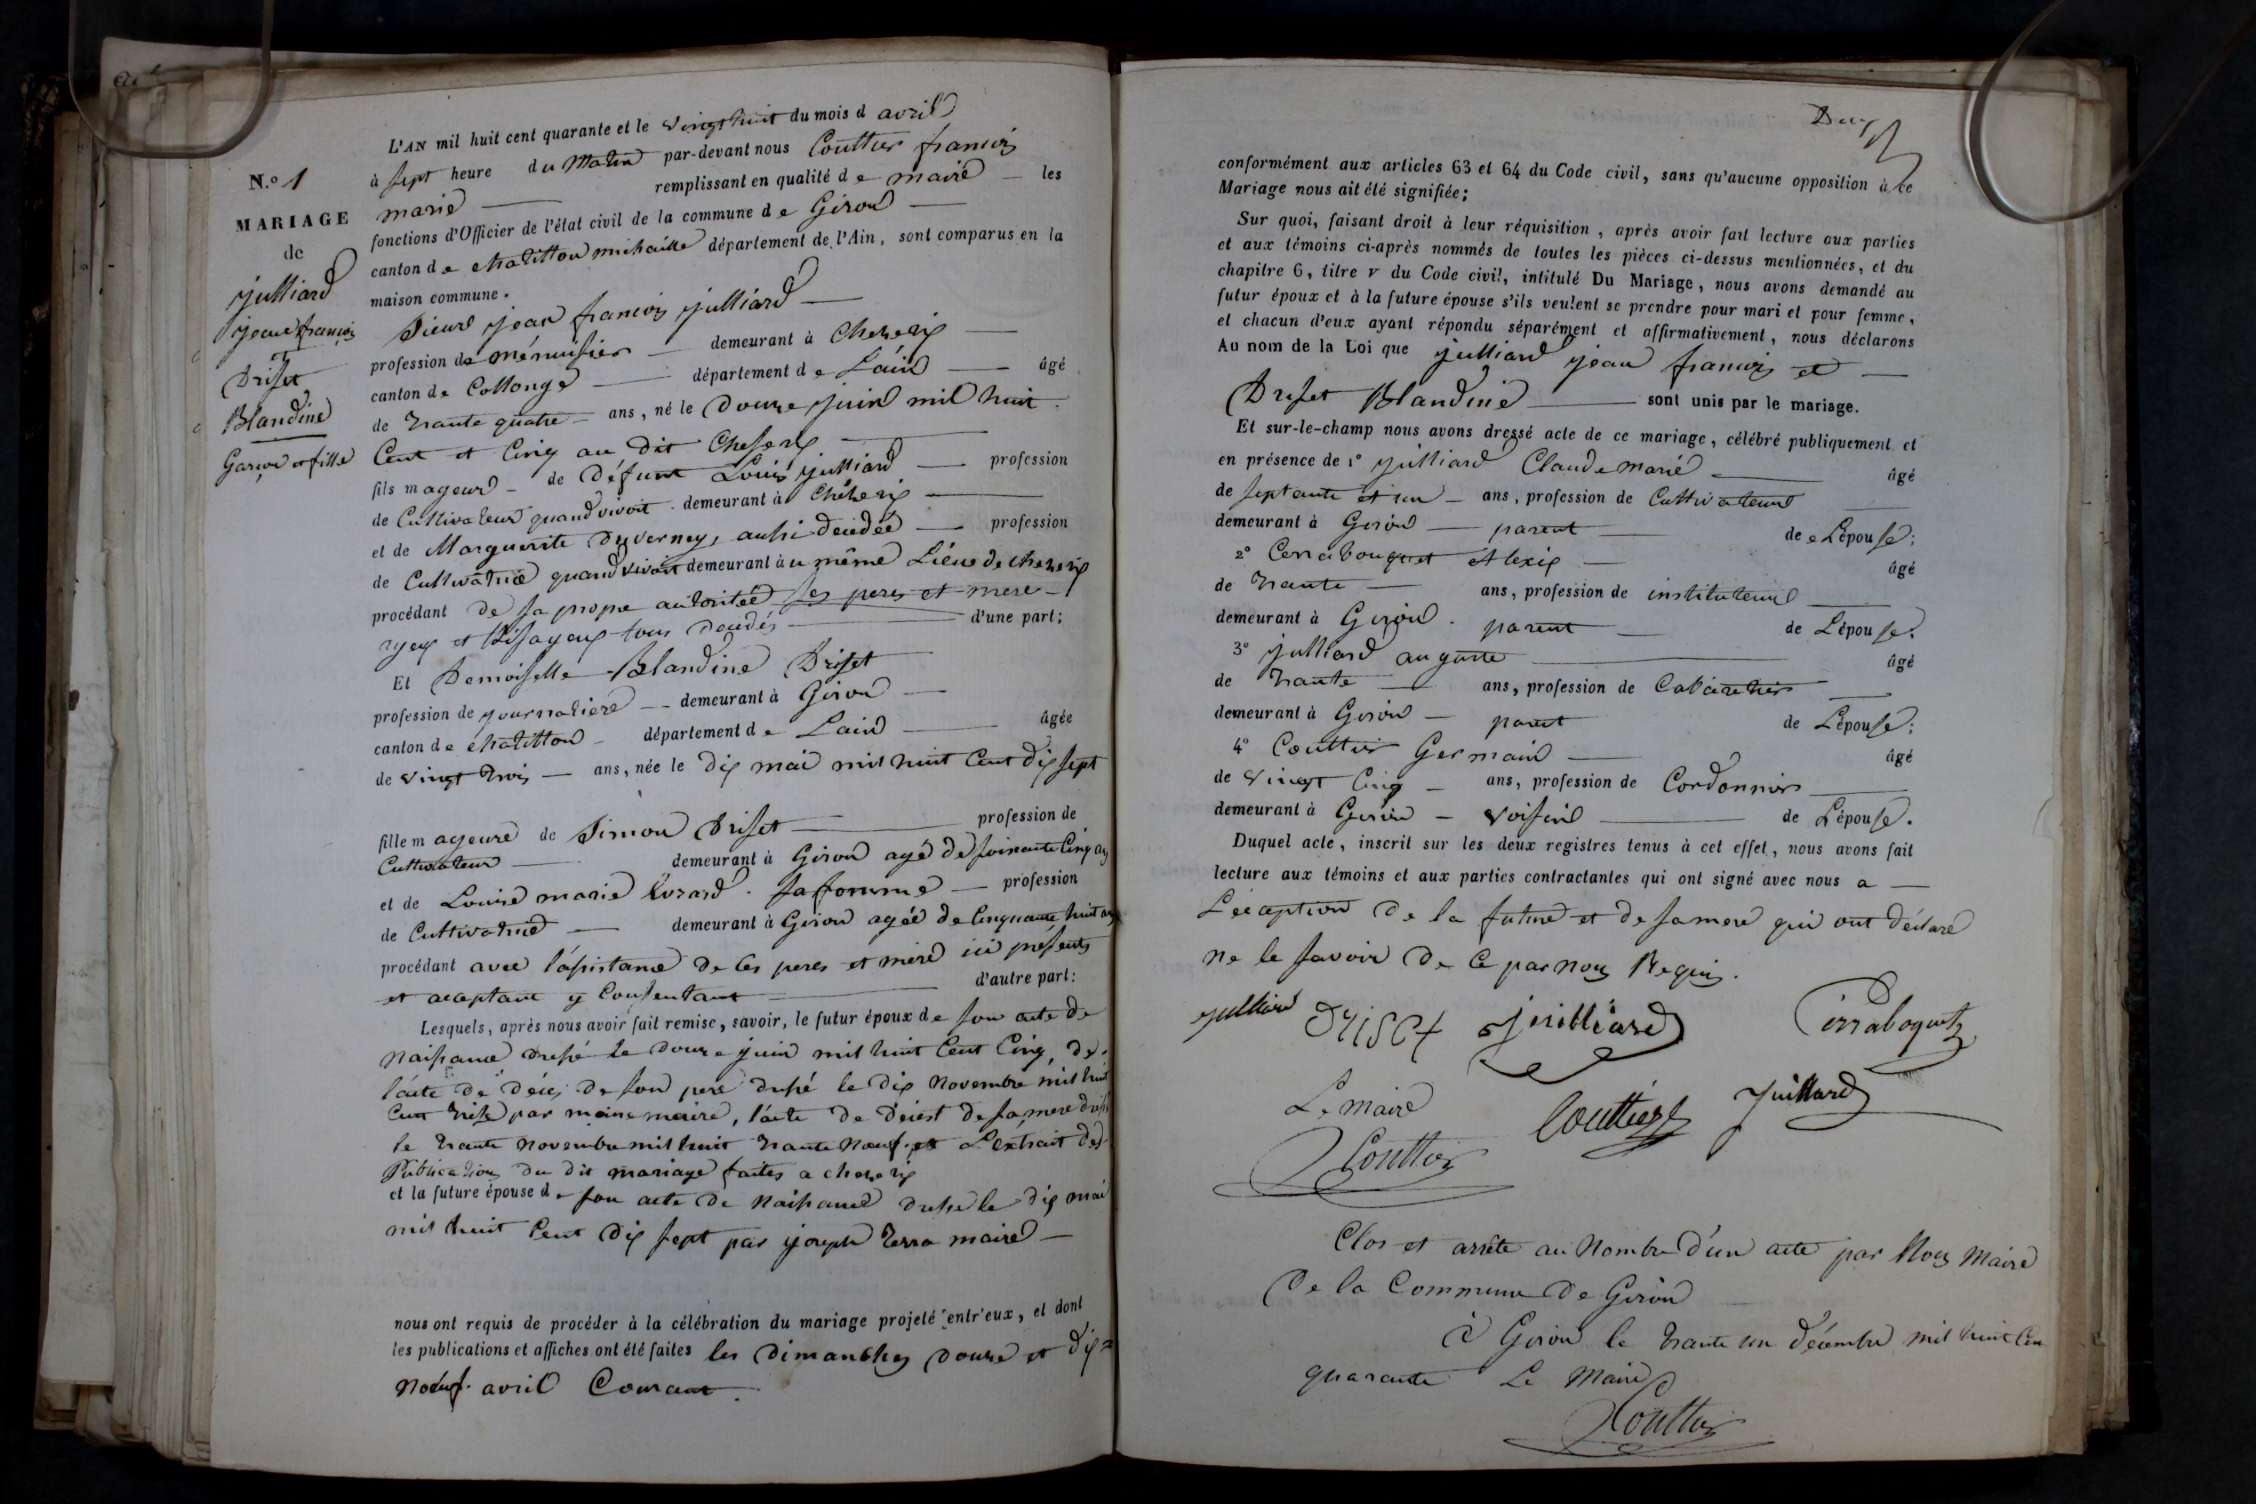 L'AN mil huit cent quarante et le vingt huit du mois d avril
N.o 1
à sept heure du Matin par-devant nous Couttier francois
marie — remplissant en qualité de maire — les
MARIAGE
fonctions d'Officier de l'état civil de la commune de Giron —
de
canton de chatillon michaille département de l'Ain, sont comparus en la
maison commune.
julliard
jean francois
Et
Driset
Blandine
Garçon et fille
Sieur jean francois julliard —
profession de ménuisier — demeurant à Chezerix —
canton de Collonge — département de Lain — âgé
de trante quatre — ans, né le Douze juin mil huit
Cent et Cinq au dit Cheserix —
fils mageur — de Défunt Louis julliard — profession
de Cultivateur quand vivoit. demeurant à Chezerix —
et de Marguerite Duverney, aussi decedée — profession
de Cultivatrice quand vivoit demeurant à u même Lieu de chezerix
procédant de sa propre autoritée ses peres et mere
ayex et bisayeux tous decedés — d'une part;
Et Demoiselle Blandine Driset
profession de journaliere — demeurant à Giron —
canton de chatillon — département de Lain — âgée
de vingt trois — ans, née le dix mai mil huit Cent dix sept
fille mageure de Simon Driset — profession de
Cultivateur — demeurant à Giron agé de soixante Cinq ans
et de Louise marie Evrard. sa femme — profession
de Cultivatrice — demeurant à Giron agée de Cinquante huit ans
procédant avec l'asistance de ses peres et mère ici présents
et acceptant y Consentant — d'autre part:
Lesquels, après nous avoir fait remise, savoir, le futur époux de son acte de
Naissance dressé le Douze juin mil huit Cent Cinq, de
l'acte de décès de son pere dressé le dix Novembre mil huit
Cent treize par moine maire, l'acte de décest de sa mere dressé
le trante novembre mil huit trante Neuf. et L'extrait des
Publications du dit mariage faites a chezerix
et la future épouse de son acte de Naissance dressé le dix mai
mil huit Cent Dix sept par joseph Terra maire —
nous ont requis de procéder à la célébration du mariage projeté entr'eux, et dont
les publications et affiches ont été faites les Dimanches Douze et dix=
Noeuf. avril Courant.
Deux
conformément aux articles 63 et 64 du Code civil, sans qu'aucune opposition à ce
Mariage nous ait été signifiée;
Sur quoi, faisant droit à leur réquisition, après avoir fait lecture aux parties
et aux témoins ci-après nommés de toutes les pièces ci-dessus mentionnées, et du
chapitre 6, titre v du Code civil, intitulé Du Mariage, nous avons demandé au
futur époux et à la future épouse s'ils veulent se prendre pour mari et pour femme,
et chacun d'eux ayant répondu séparément et affirmativement, nous déclarons
Au nom de la Loi que julliard jean francois et —
Driset Blandine — sont unis par le mariage.
Et sur-le-champ nous avons dressé acte de ce mariage, célébré publiquement et
en présence de 1° julliard Claude marie — âgé
de septante et un — ans, profession de Cultivateur —
demeurant à Giron — parent — de e Lépouse;
2° Cerrabouquet Alexis — âgé
de trante — ans, profession de instituteur —
demeurant à Giron. parent — de Lépouse;
3° julliard auguste — âgé
de trante — ans, profession de Cabaretier —
demeurant à Giron — parent de Lépouse;
4° Couttier Germain — âgé
de vingt Cinq — ans, profession de Cordonnier —
demeurant à Giron — voisin — de Lépouse.
Duquel acte, inscrit sur les deux registres tenus à cet effet, nous avons fait
lecture aux témoins et aux parties contractantes qui ont signé avec nous a —
Léceptiond de la future et de sa mere qui ont déclaré
ne le savoir de Ce par nous Requis.
julliard Driset juilliard Cerraboquet
Le maire Couttier juillard
Couttier
Clos et arrêté au Nombre d'un acte par Nous Maire
De la Commune De Giron
à Giron le trante un décembre mil huit Cen
quarante Le Maire
Couttier